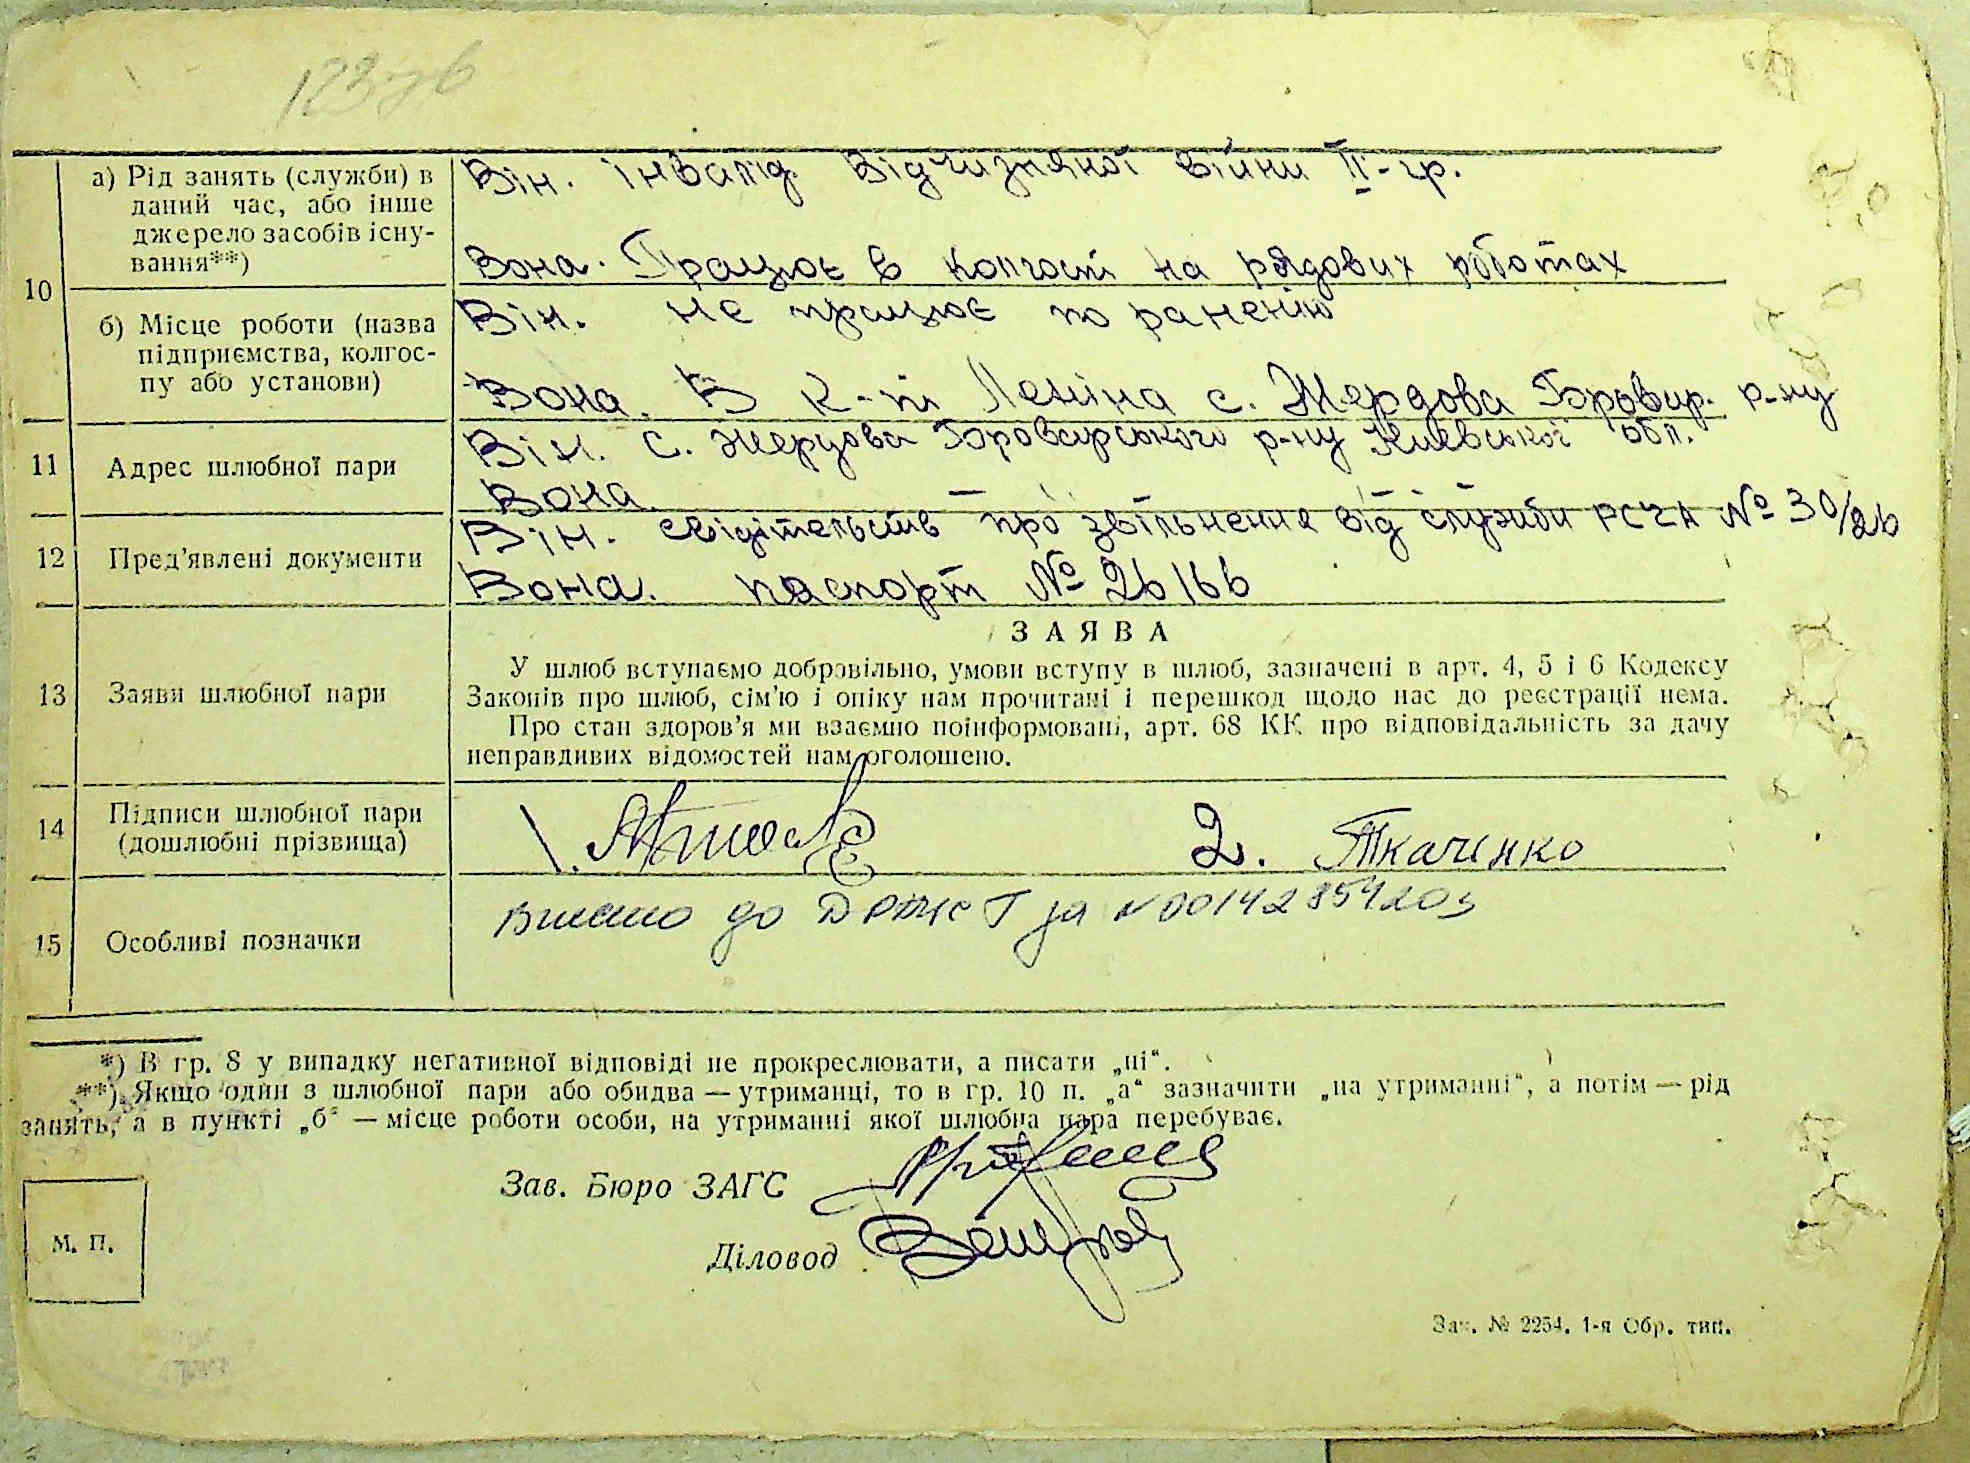 10
а) Рід занять (служби) в
даний час, або інше
джерело засобів існу-
вання**)
Він. інвалід. Відчизняної війни ІІ-гр.
Вона. Працює в колгоспі на рядових роботах
б) Місце роботи (назва
підприємства, колгос-
пу або установи)
Він. не працює по раненію
Вона. В к-пі Леніна с. Жердова Бровар. р-ну
11
Адрес шлюбної пари
Він. с. Жердова Броварського р-ну Київської обл.
Вона. — " —
12
Пред'явлені документи
Він. свідітельств про звільнення від служби РСЧА № 30/26
Вона. паспорт № 26166
ЗАЯВА
13
Заяви шлюбної пари
У шлюб вступаємо добровільно, умови вступу в шлюб, зазначені в арт. 4, 5 і 6 Кодексу
Законів про шлюб, сім'ю і опіку нам прочитані і перешкод щодо нас до реєстрації нема.
Про стан здоров'я ми взаємно поінформовані, арт. 68 КК про відповідальність за дачу
неправдивих відомостей нам оголошено.
14
Підписи шлюбної пари
(дошлюбні прізвища)
1.
2. Ткаченко
15
Особливі позначки
Внесено до ДРАЦСГ за N 00142854203
*) В гр. 8 у випадку негативної відповіді не прокреслювати, а писати „ні“.
**) Якщо один з шлюбної пари або обидва — утриманці, то в гр. 10 п. „а“ зазначити „на утриманні“, а потім — рід
занять, а в пункті „б“ — місце роботи особи, на утриманні якої шлюбна пара перебуває.
Зав. Бюро ЗАГС
Діловод
М. П.
Зак. № 2254. 1-я Обр. тип.